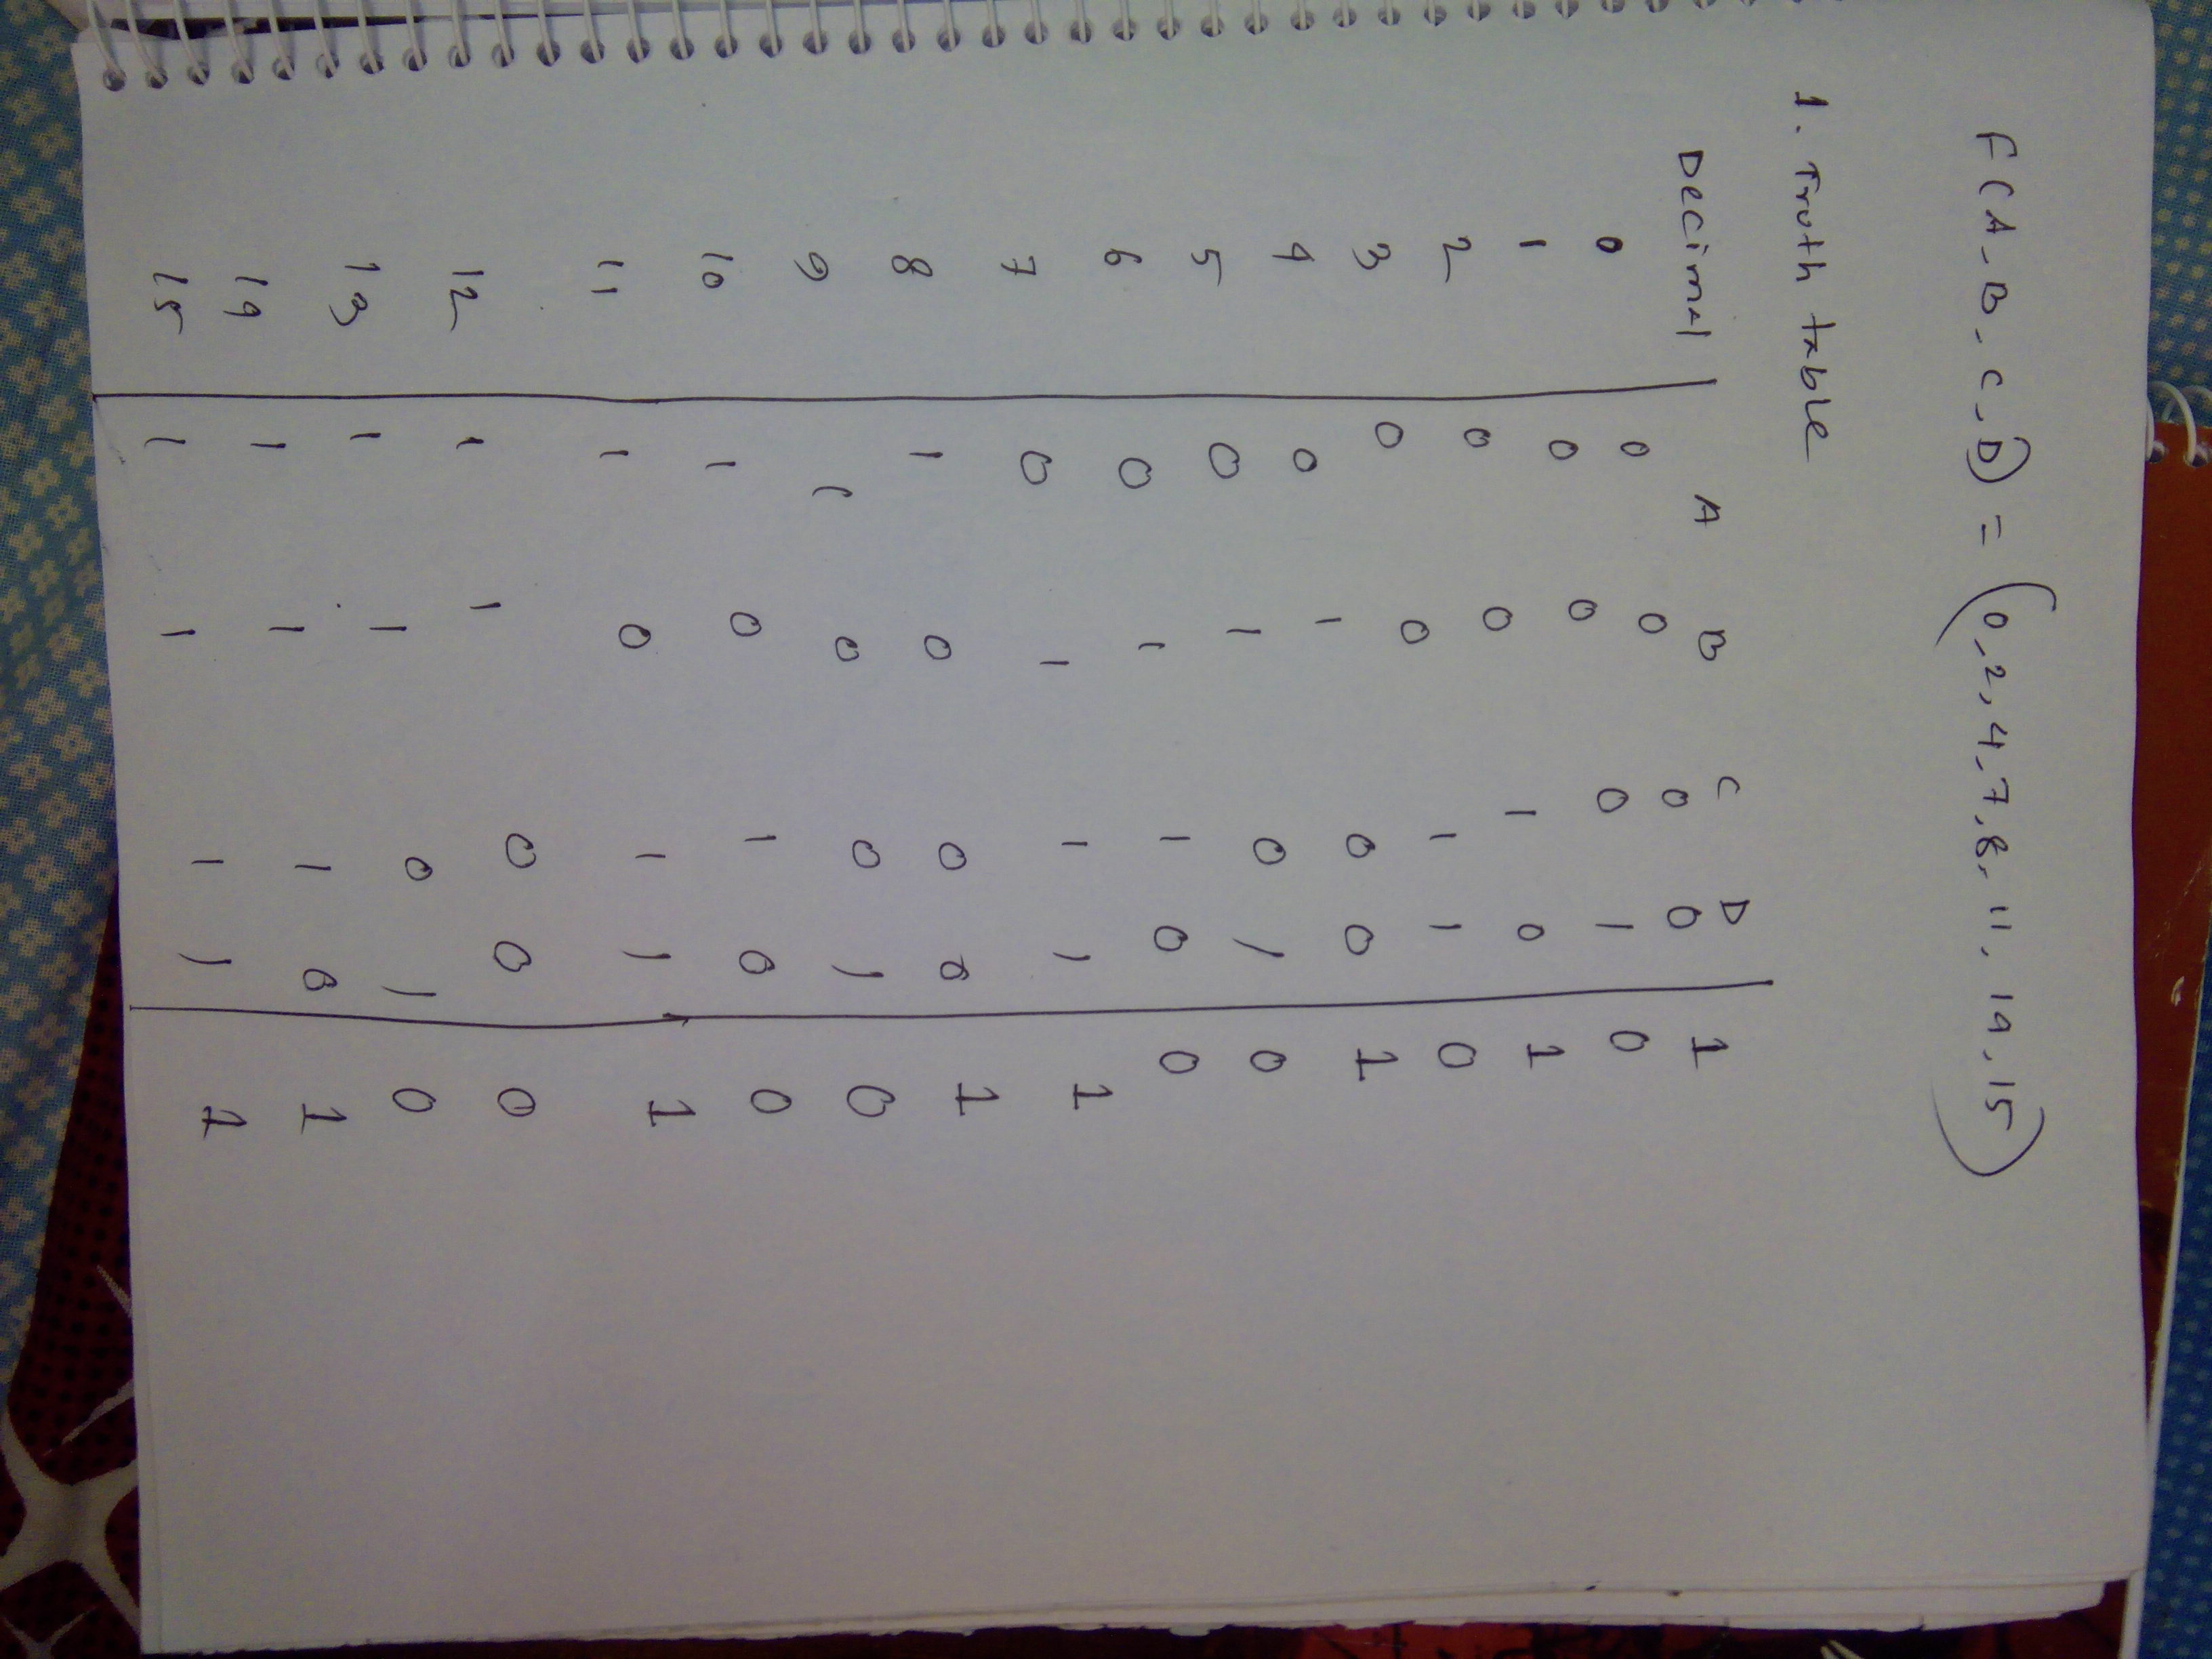 F(A,B,C,D) = (0,2,4,7,8,11,14,15)
1. Truth table
Decimal A B C D
0 0 0 0 0 1
1 0 0 0 1 0
2 0 0 1 0 1
3 0 0 1 1 0
4 0 1 0 0 1
5 0 1 0 1 0
6 0 1 1 0 0
7 0 1 1 1 1
8 1 0 0 0 1
9 1 0 0 1 0
10 1 0 1 0 0
11 1 0 1 1 1
12 1 1 0 0 0
13 1 1 0 1 0
14 1 1 1 0 1
15 1 1 1 1 1